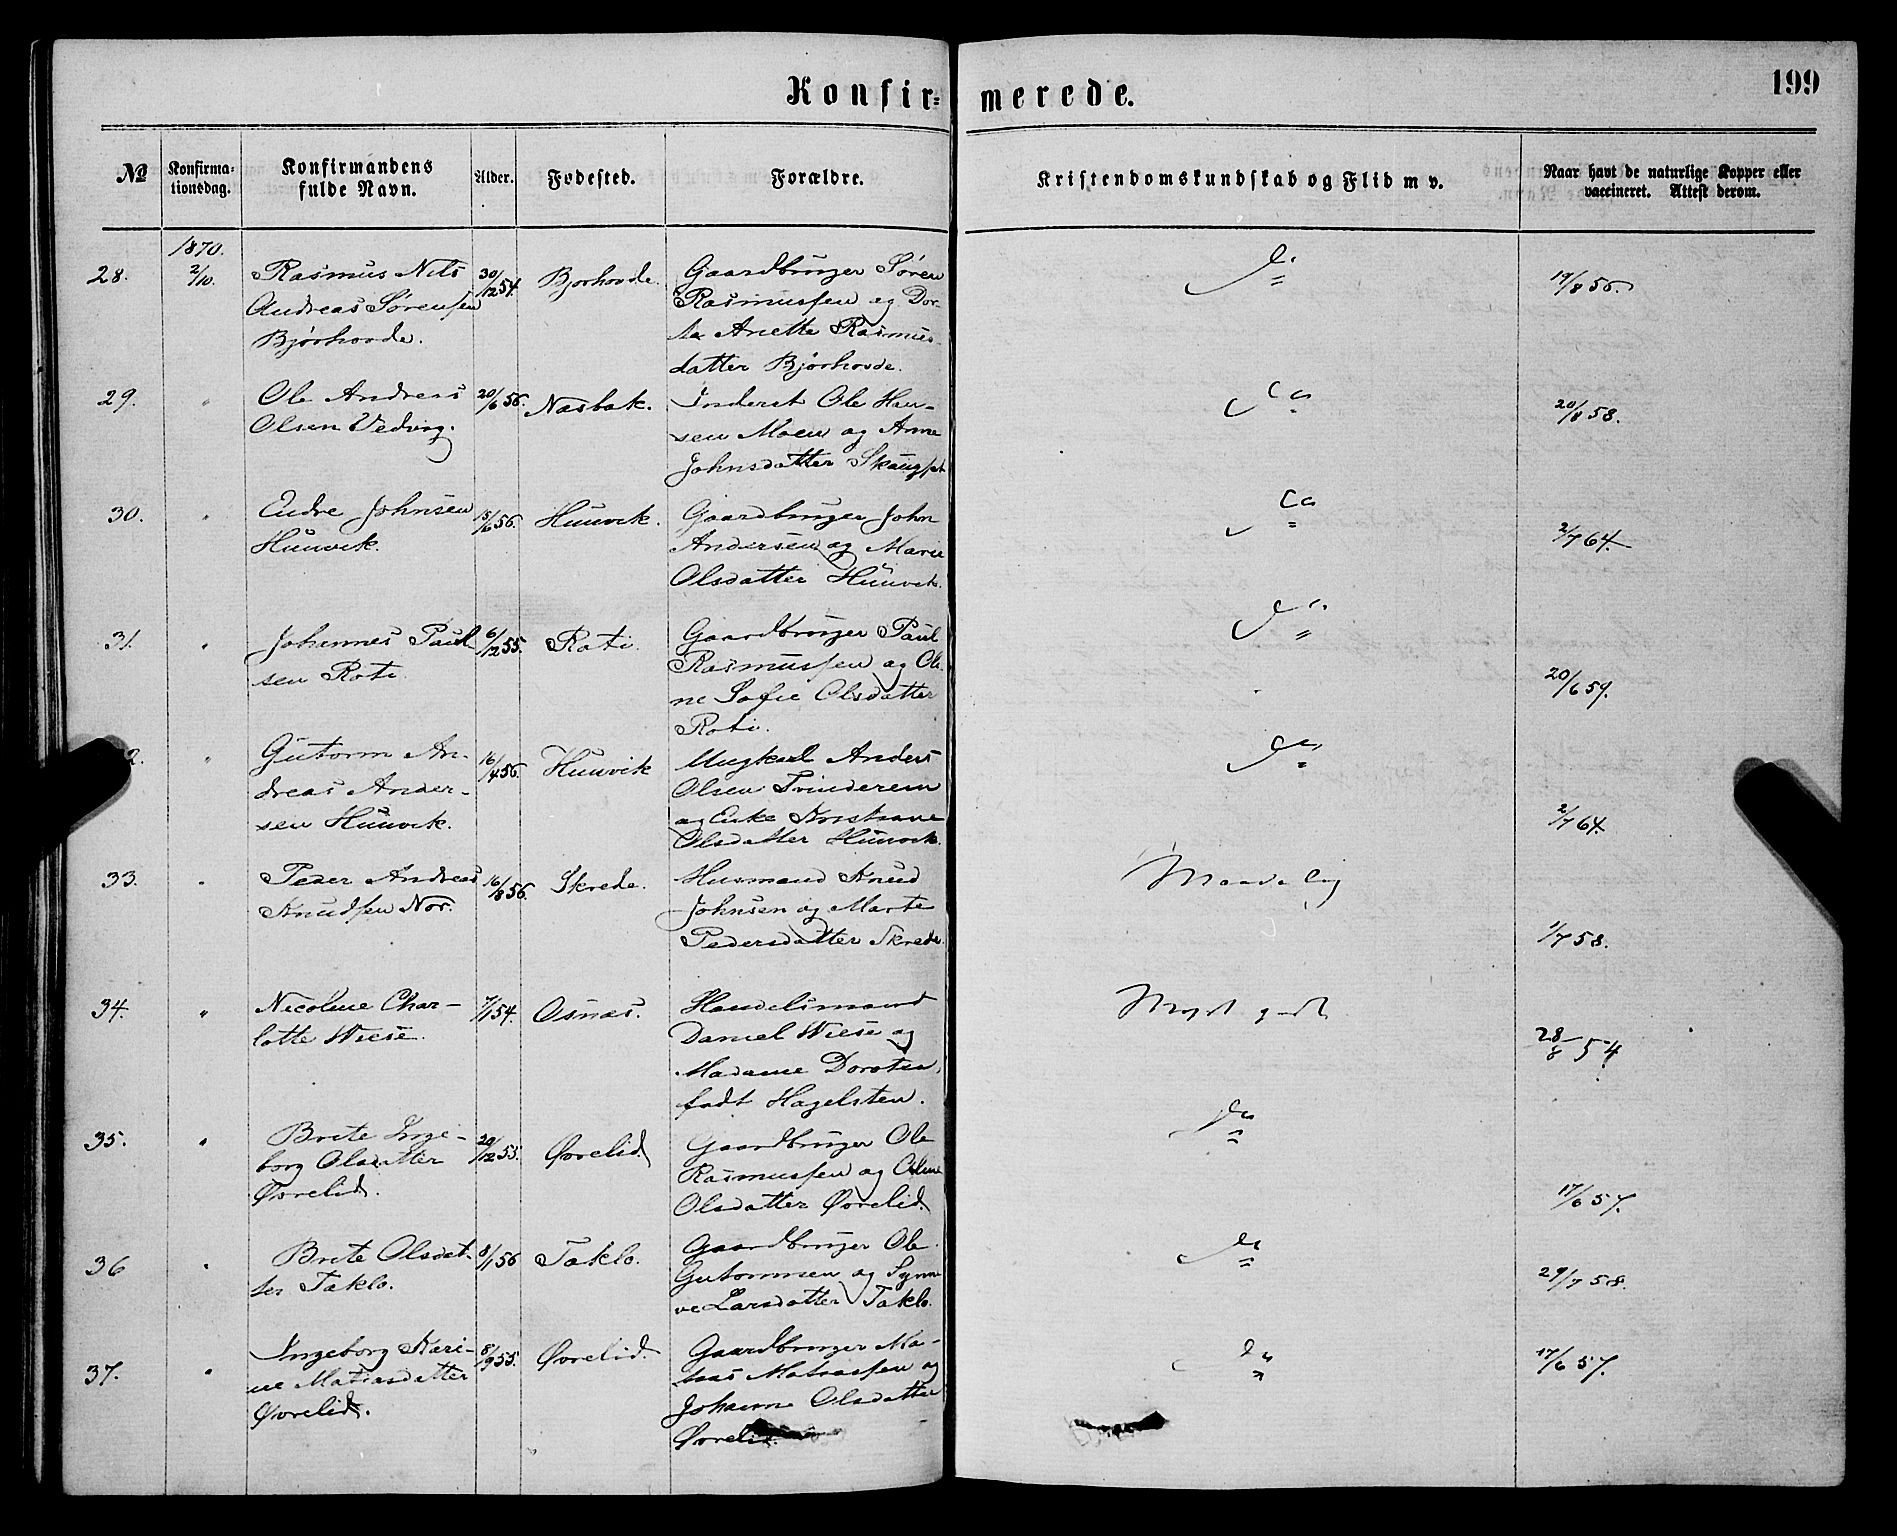 Konfir=
merede.
199
№
Konfirma-
tionsdag.
Konfirmandens
fulde Navn.
Alder.
Fødested.
Forældre.
Kristendomskundskab og Flid m v.
Naar havt de naturlige Kopper eller
vaccineret. Attest derom.
1870.
28.
2/10.
Rasmus Nils
Andreas Sørensen
Bjørhovde.
30/12 54.
Bjørhovde.
Gaardbruger Søren
Rasmussen og Dor-
tea Anette Rasmus-
datter Bjørhovde.
19/8 56.
29.
"
Ole Andreas
Olsen Vedvig.
20/6 56.
Nasbak.
Inderst Ole Han-
sen Moen og Anne
Johnsdatter
20/8 58.
30.
"
Endre Johnsen
Hunvik.
15/6 56.
Hunvik.
Gaardbruger John
Andersen og Marie
Olsdatter Hunvik.
2/7 64.
31.
"
Johannes Paul-
sen Roti.
6/12 55.
Roti.
Gaardbruger Paul
Rasmussen og Oli-
ne Sofie Olsdatter
Roti.
20/6 59.
2.
"
Gutorm An-
dreas Ander-
sen Hunvik.
16/4 56.
Hunvik
Ungkarl Anders
Olsen Tvinderein
og Enke Kristiane
Olsdatter Hunvik.
2/7 64.
33.
"
Peder Andreas
Knudsen Nor.
16/8 56.
Skrede.
Husmand Knud
Johnsen og Marte
Pedersdatter Skrede.
Maadelig
1/7 58.
34.
"
Nicoline Char-
lotte Wiese.
7/1 54.
Osnas.
Handelsmand
Daniel Wiese og
Madame Dorotea,
født Hagelsten.
Meget godt
28/8 54
35.
"
Brite Inge-
borg Olsdatter
Øvrelid.
29/12 55.
Øvrelid.
Gaardbruger Ole
Rasmussen og Oline
Olsdatter Øvrelid.
17/6 57.
36
"
Brite Olsdat-
ter Taklo.
8/1 56
Taklo.
Gaardbruger Ole
Gutormsen og Synne-
ve Larsdatter Taklo.
29/7 58
37.
"
Ingeborg Kari-
ne Matiasdatter
Øvrelid.
8/9 55.
Øvrelid.
Gaardbruger Ma-
tias Matiassen og
Johanne Olsdatter
Øvrelid.
17/6 57.